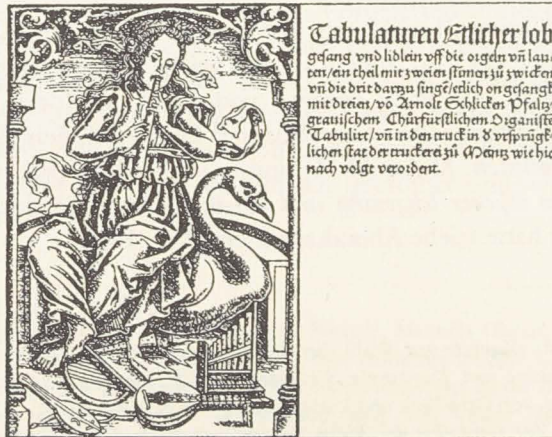 Tabulaturen Etlicher lob
gesang vnd lidlein vff die orgeln vñ lau
ten/ein theil mit zweien stimen zů zwicken
vñ die drit dartzu singē/etlich on gesangk
mit dreien/vō Arnolt Schlicken Pfaltz
grauischem Chürfürstlichem Organistē
Tabulirt/vñ in den truck in d vrsprūgk
lichen stat der truckerei zů Meintz wie hie
nach volgt verordent.